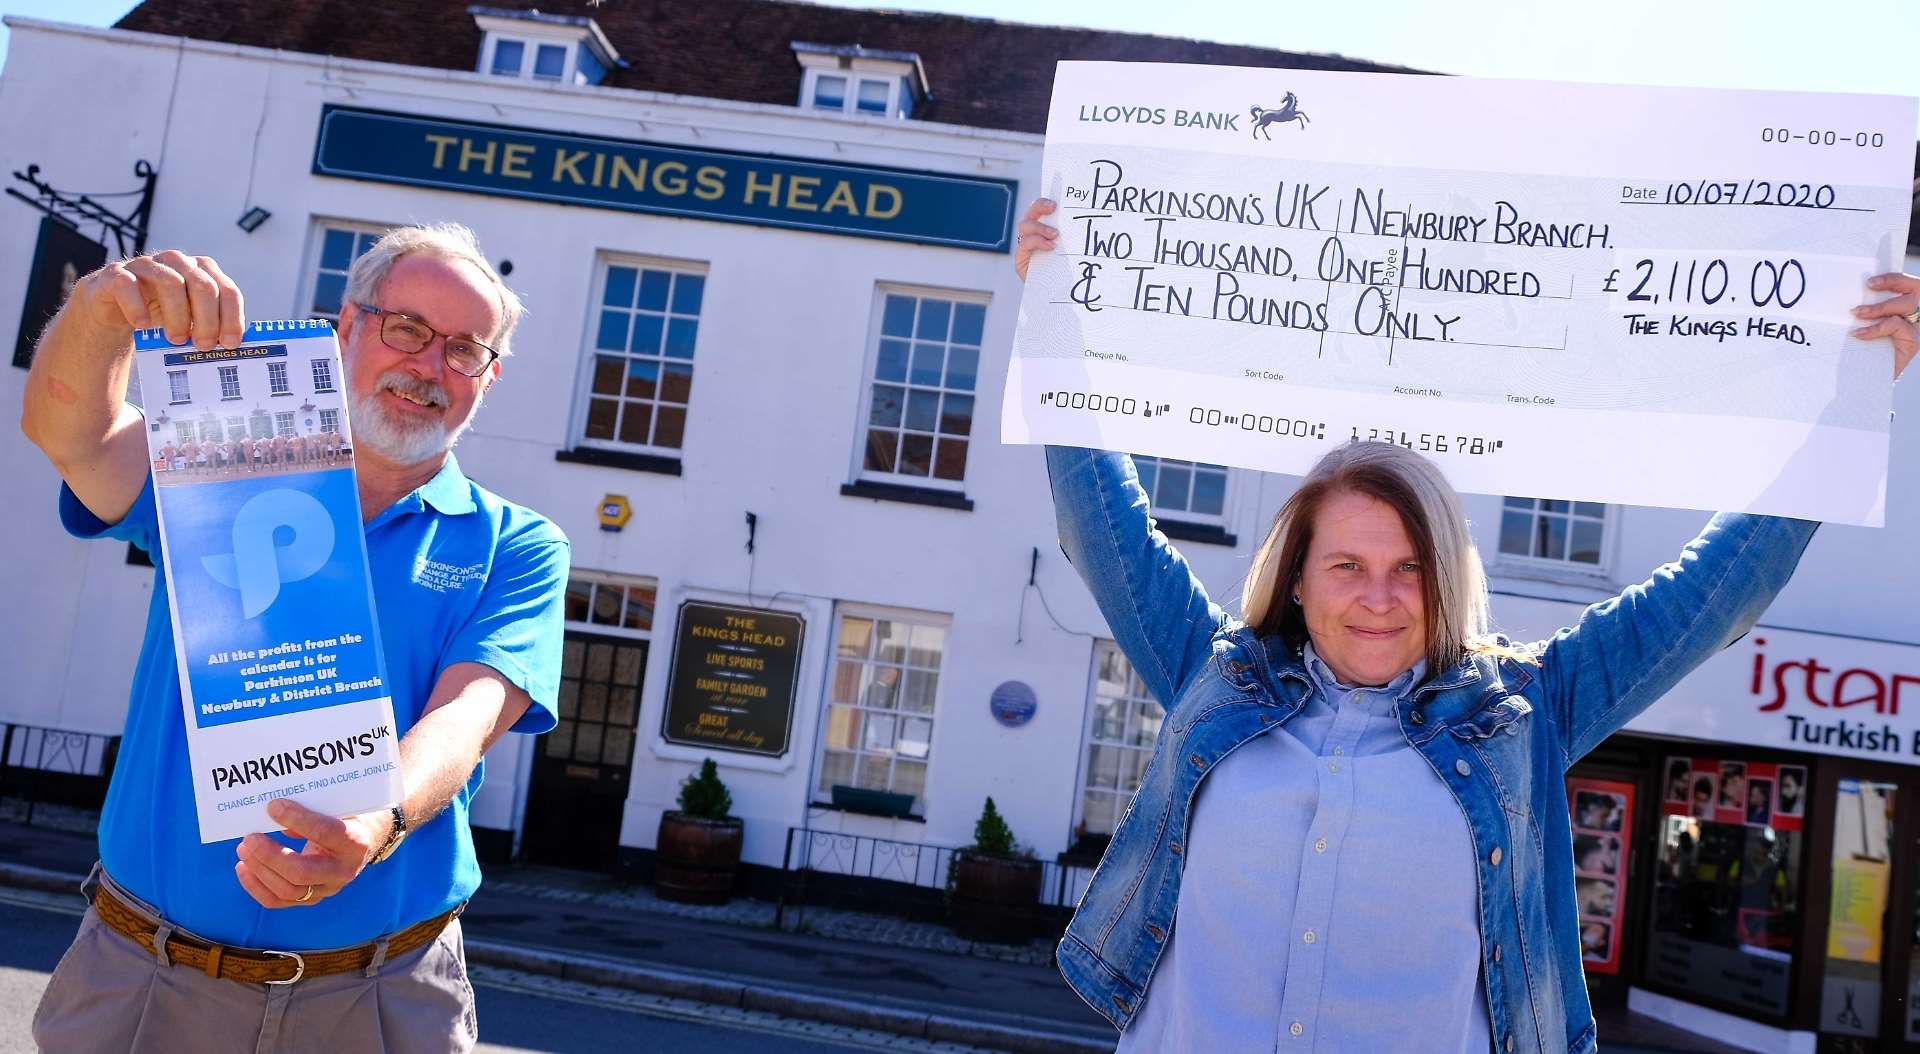 THE KINGS HEAD
LLOYDS BANK
00-00-00
Pay PARKINSON'S UK NEWBURY BRANCH.
Date 10/07/2020
TWO THOUSAND, ONE HUNDRED
& TEN POUNDS ONLY.
£ 2,110.00
THE KINGS HEAD.
A/C Payee
Cheque No.
Sort Code
Account No.
Trans. Code
⑈000001⑈ 00⑉0000⑆ 12345678⑈
THE KINGS HEAD
All the profits from the
calendar is for
Parkinson UK
Newbury & District Branch
PARKINSON'S UK
CHANGE ATTITUDES. FIND A CURE. JOIN US.
PARKINSON'S UK
CHANGE ATTITUDES.
FIND A CURE.
JOIN US.
ADT
THE
KINGS HEAD
LIVE SPORTS
FAMILY GARDEN
at rear
GREAT
Served all day
istan
Turkish B